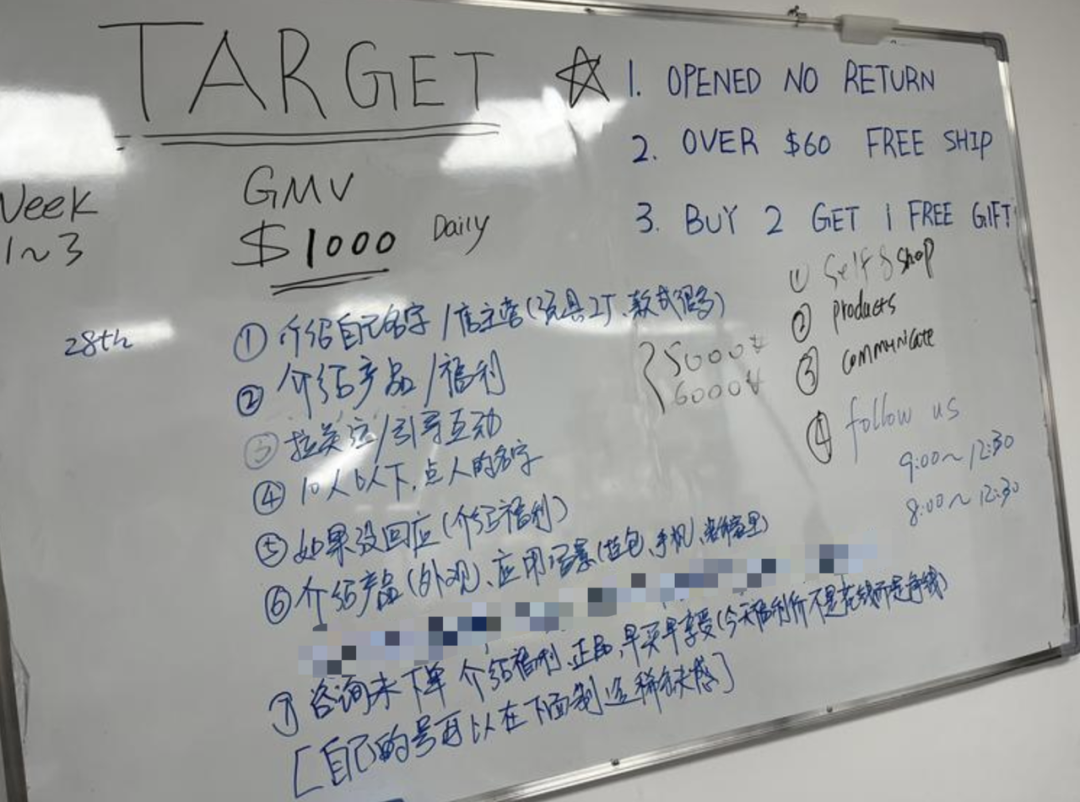 TARGET
☆ 1. OPENED NO RETURN
2. OVER $60 FREE SHIP
3. BUY 2 GET 1 FREE GIFT
Week
1~3
GMV
$1000 Daily
28th
① 介绍自己名字/店主营(玩具工厂、款式很多)
② 介绍产品/福利
③ 拉关注/引导互动
④ 10人以下,点人的名字
⑤ 如果没回应(介绍福利)
⑥ 介绍产品(外观)、应用场景(挂包、手机、
⑦ 咨询未下单 介绍福利、正品,早买早享受(今天福利价不是花钱而是挣钱)
[自己的号可以在下面制造稀缺感]
5000
6000
① self & shop
② products
③ communicate
④ follow us
9:00~12:30
8:00~12:30